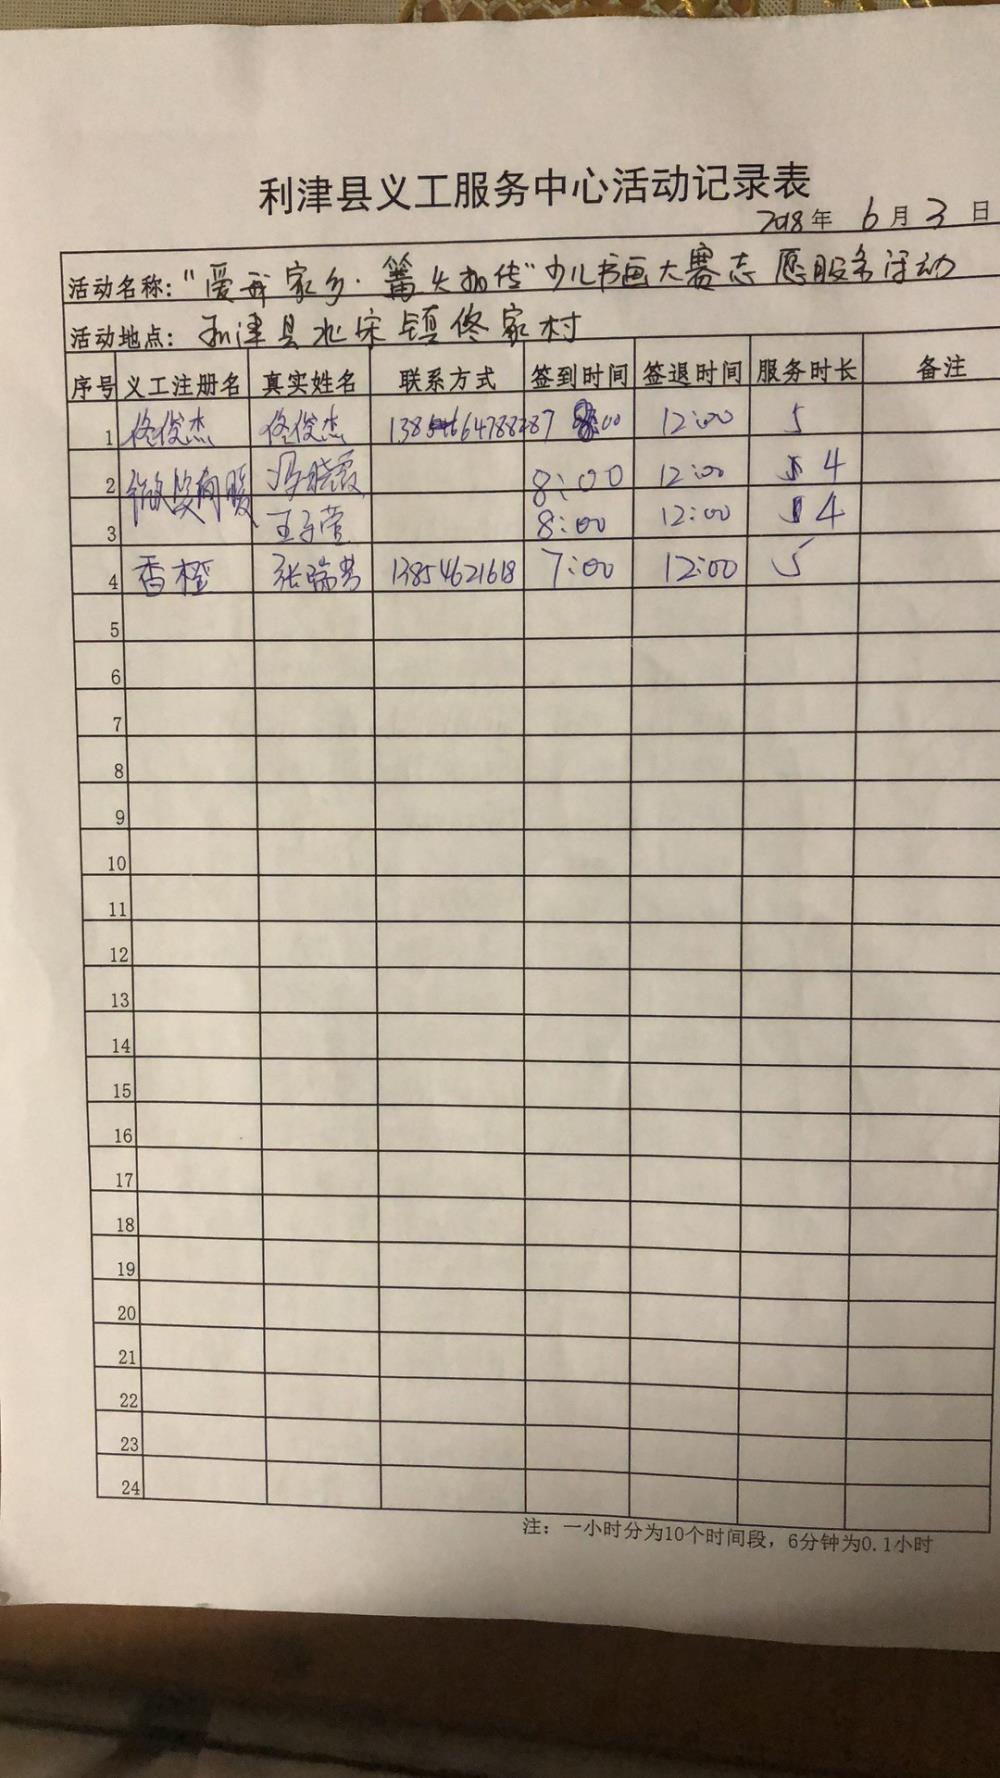 利津县义工服务中心活动记录表
2018年 6月3日
活动名称："爱我家乡·薪火相传"少儿书画大赛志愿服务活动
活动地点：利津县北宋镇佟家村
序号 义工注册名 真实姓名 联系方式 签到时间 签退时间 服务时长 备注
1 佟俊杰 佟俊杰 :00 12:00 5
2 微笑向暖 冯晓霞 8:00 12:00 4
3 王子萱 8:00 12:00 4
4 香橙 张瑞芳 13854621618 7:00 12:00 5
5
6
7
8
9
10
11
12
13
14
15
16
17
18
19
20
21
22
23
24
注：一小时分为10个时间段，6分钟为0.1小时